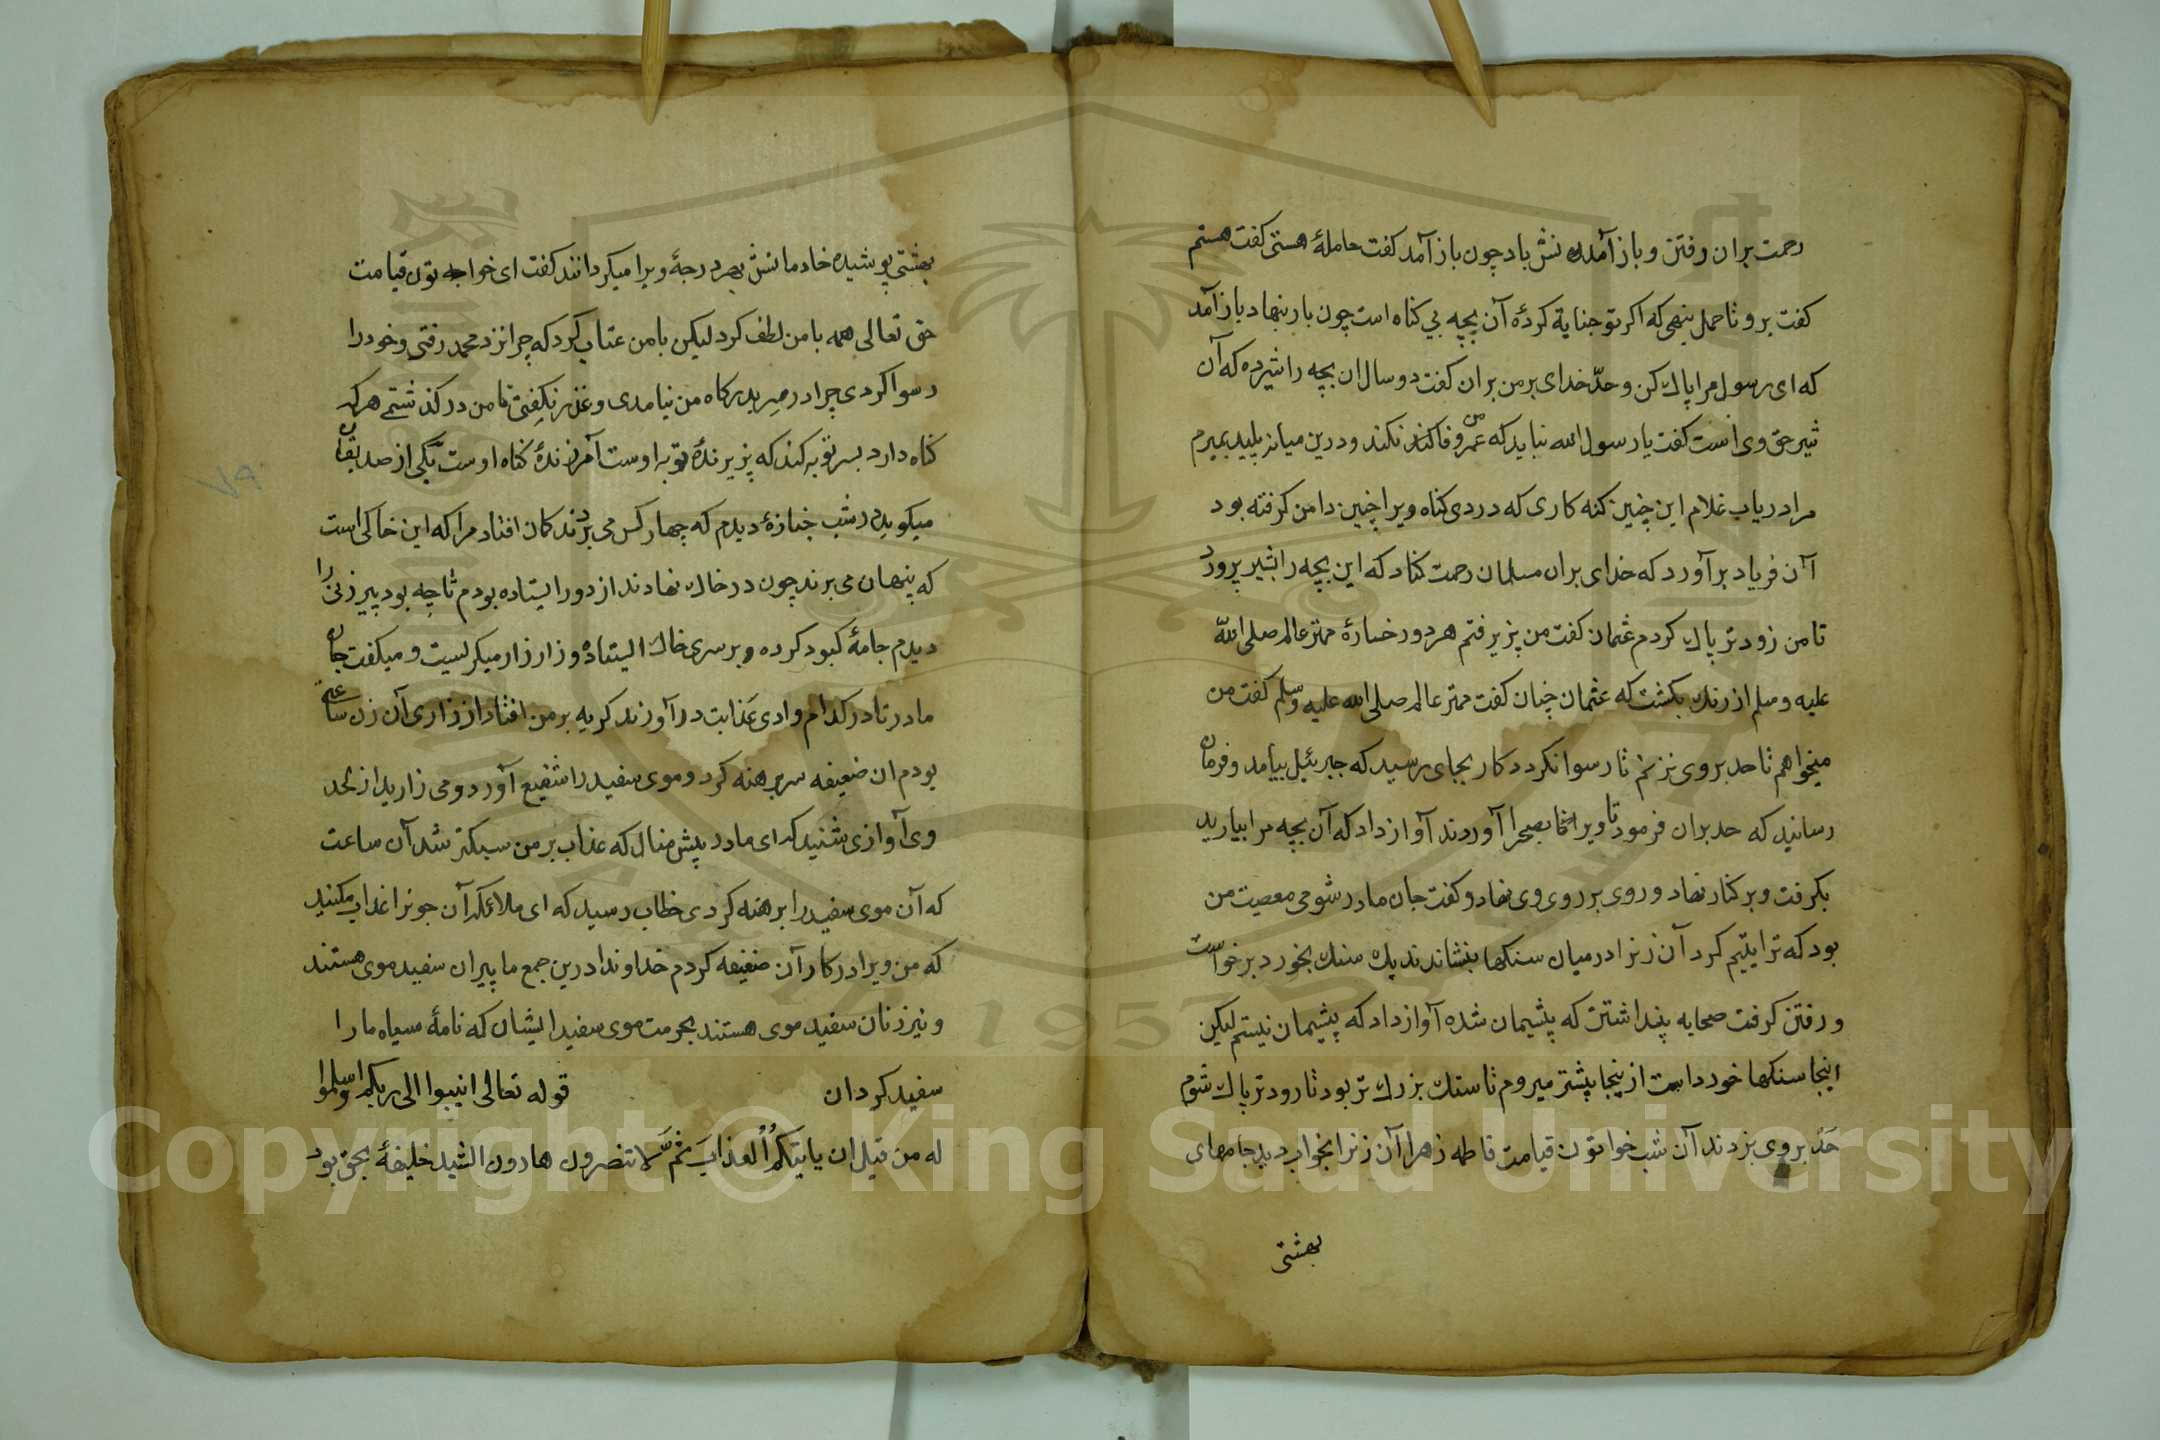 رحمت بران رفتن و باز آمدنش باد چون باز آمد کفت حاملهٔ هستی کفت هستم
کفت برو تا حمل بنهی که اکر تو جنایة کردهٔ آن بچه بی کناه است چون بار بنهاد باز آمد
که ای رسول مرا پاك کن و حدّ خدای بر من بران کفت دو سال ان بچه را شیر ده که آن
شیر حق وی است کفت یا رسول الله نباید که عمر من وفا کند نکند و درین میانه پلید بمیرم
مرا دریاب غلام این چنین کنه کاری که دردی کناه ویرا چنین دامن کرفته بود
آن فریاد برآورد که خدای بران مسلمان رحمت کناد که این بچه را بشیر پرورد
تا من زودتر پاك کردم عثمان کفت من پزیرفتم هر دو رخسارهٔ مهتر عالم صلی اللّه
علیه وسلم از رنك بکشت که عثمان چنان کفت مهتر عالم صلی الله علیه وسلم کفت من
میخواهم تا حد بر وی نزنم تا رسوا نکردد کار بجای رسید که جبرئیل بیامد و فرمان
رسانید که حد بران فرمود تا ویرا بصحرا آوردند آواز داد که آن بچه مرا بیارید
بکرفت و بر کنار نهاد و روی بر روی وی نهاد و کفت جان مادر شومی معصیت من
بود که ترا یتیم کرد آن زنرا در میان سنکها بنشاندند یك سنك بخورد برخواست
و رفتن کرفت صحابه پنداشتن که پشیمان شده آواز داد که پشیمان نیستم لیکن
اینجا سنکها خورد است ازینجا پیشتر میروم تا سنك بزرك تر بود تا زودتر پاك شوم
حَدّ بر وی بزدند آن شب خواتون قیامت فاطمه زهرا آن زنرا بخواب دید جامهای
بهشتی
بهشتی پوشیده خادمانش بهر درجهٔ ویرا میکردانند کفت ای خواجه تون قیامت
حق تعالی همه با من لطف کرد لیکن با من عتاب کرد که چرا نزد محمد رفتی و خود را
رسوا کردی چرا در سر بدرکاه من نیامدی و عذر نکفتی تا من درکذشتمی هر که
کناه دارد بسر توبه کند که پزیرندهٔ توبه اوست آمرزندهٔ کناه اوست یکی از صدیقان
میکوید شب جنازهٔ دیدم که چهار کس می بردند کمان افتاد مرا که این خاکی است
که پنهان می برند چون در خاك نهادند از دور ایستاده بودم تا چه بود پیر زنی را
دیدم جامهٔ کبود کرده و بر سری خاك ایستاده و زار زار میکریست و میکفت جان
مادر تا در کدام وادی عَذابت درآورند کریه بر من افتاد از زاری آن زن ساعتی
بودم ان ضعیفه سر برهنه کرد و موی سفید را شفیع آورد و می زارید از لحد
وی آوازی شنید که ای مادر بیش منال که عذاب بر من سبکتر شد آن ساعت
که آن موی سفید را برهنه کردی خطاب رسید که ای ملائکه آن جوانرا عذاب مکنید
که من ویرا در کار آن ضعیفه کردم خداوندا درین جمع ما پیران سفید موی هستند
و نیز زنان سفید موی هستند بحرمت موی سفید ایشان که نامهٔ سیاه ما را
سفید کردان قوله تعالی انیبوا الی ربکم واسلموا
له من قبل ان یاتیکم العذاب ثم لا تنصرون هارون الرشید خلیفهٔ بحق بود
Copyright © King Saud University
1957